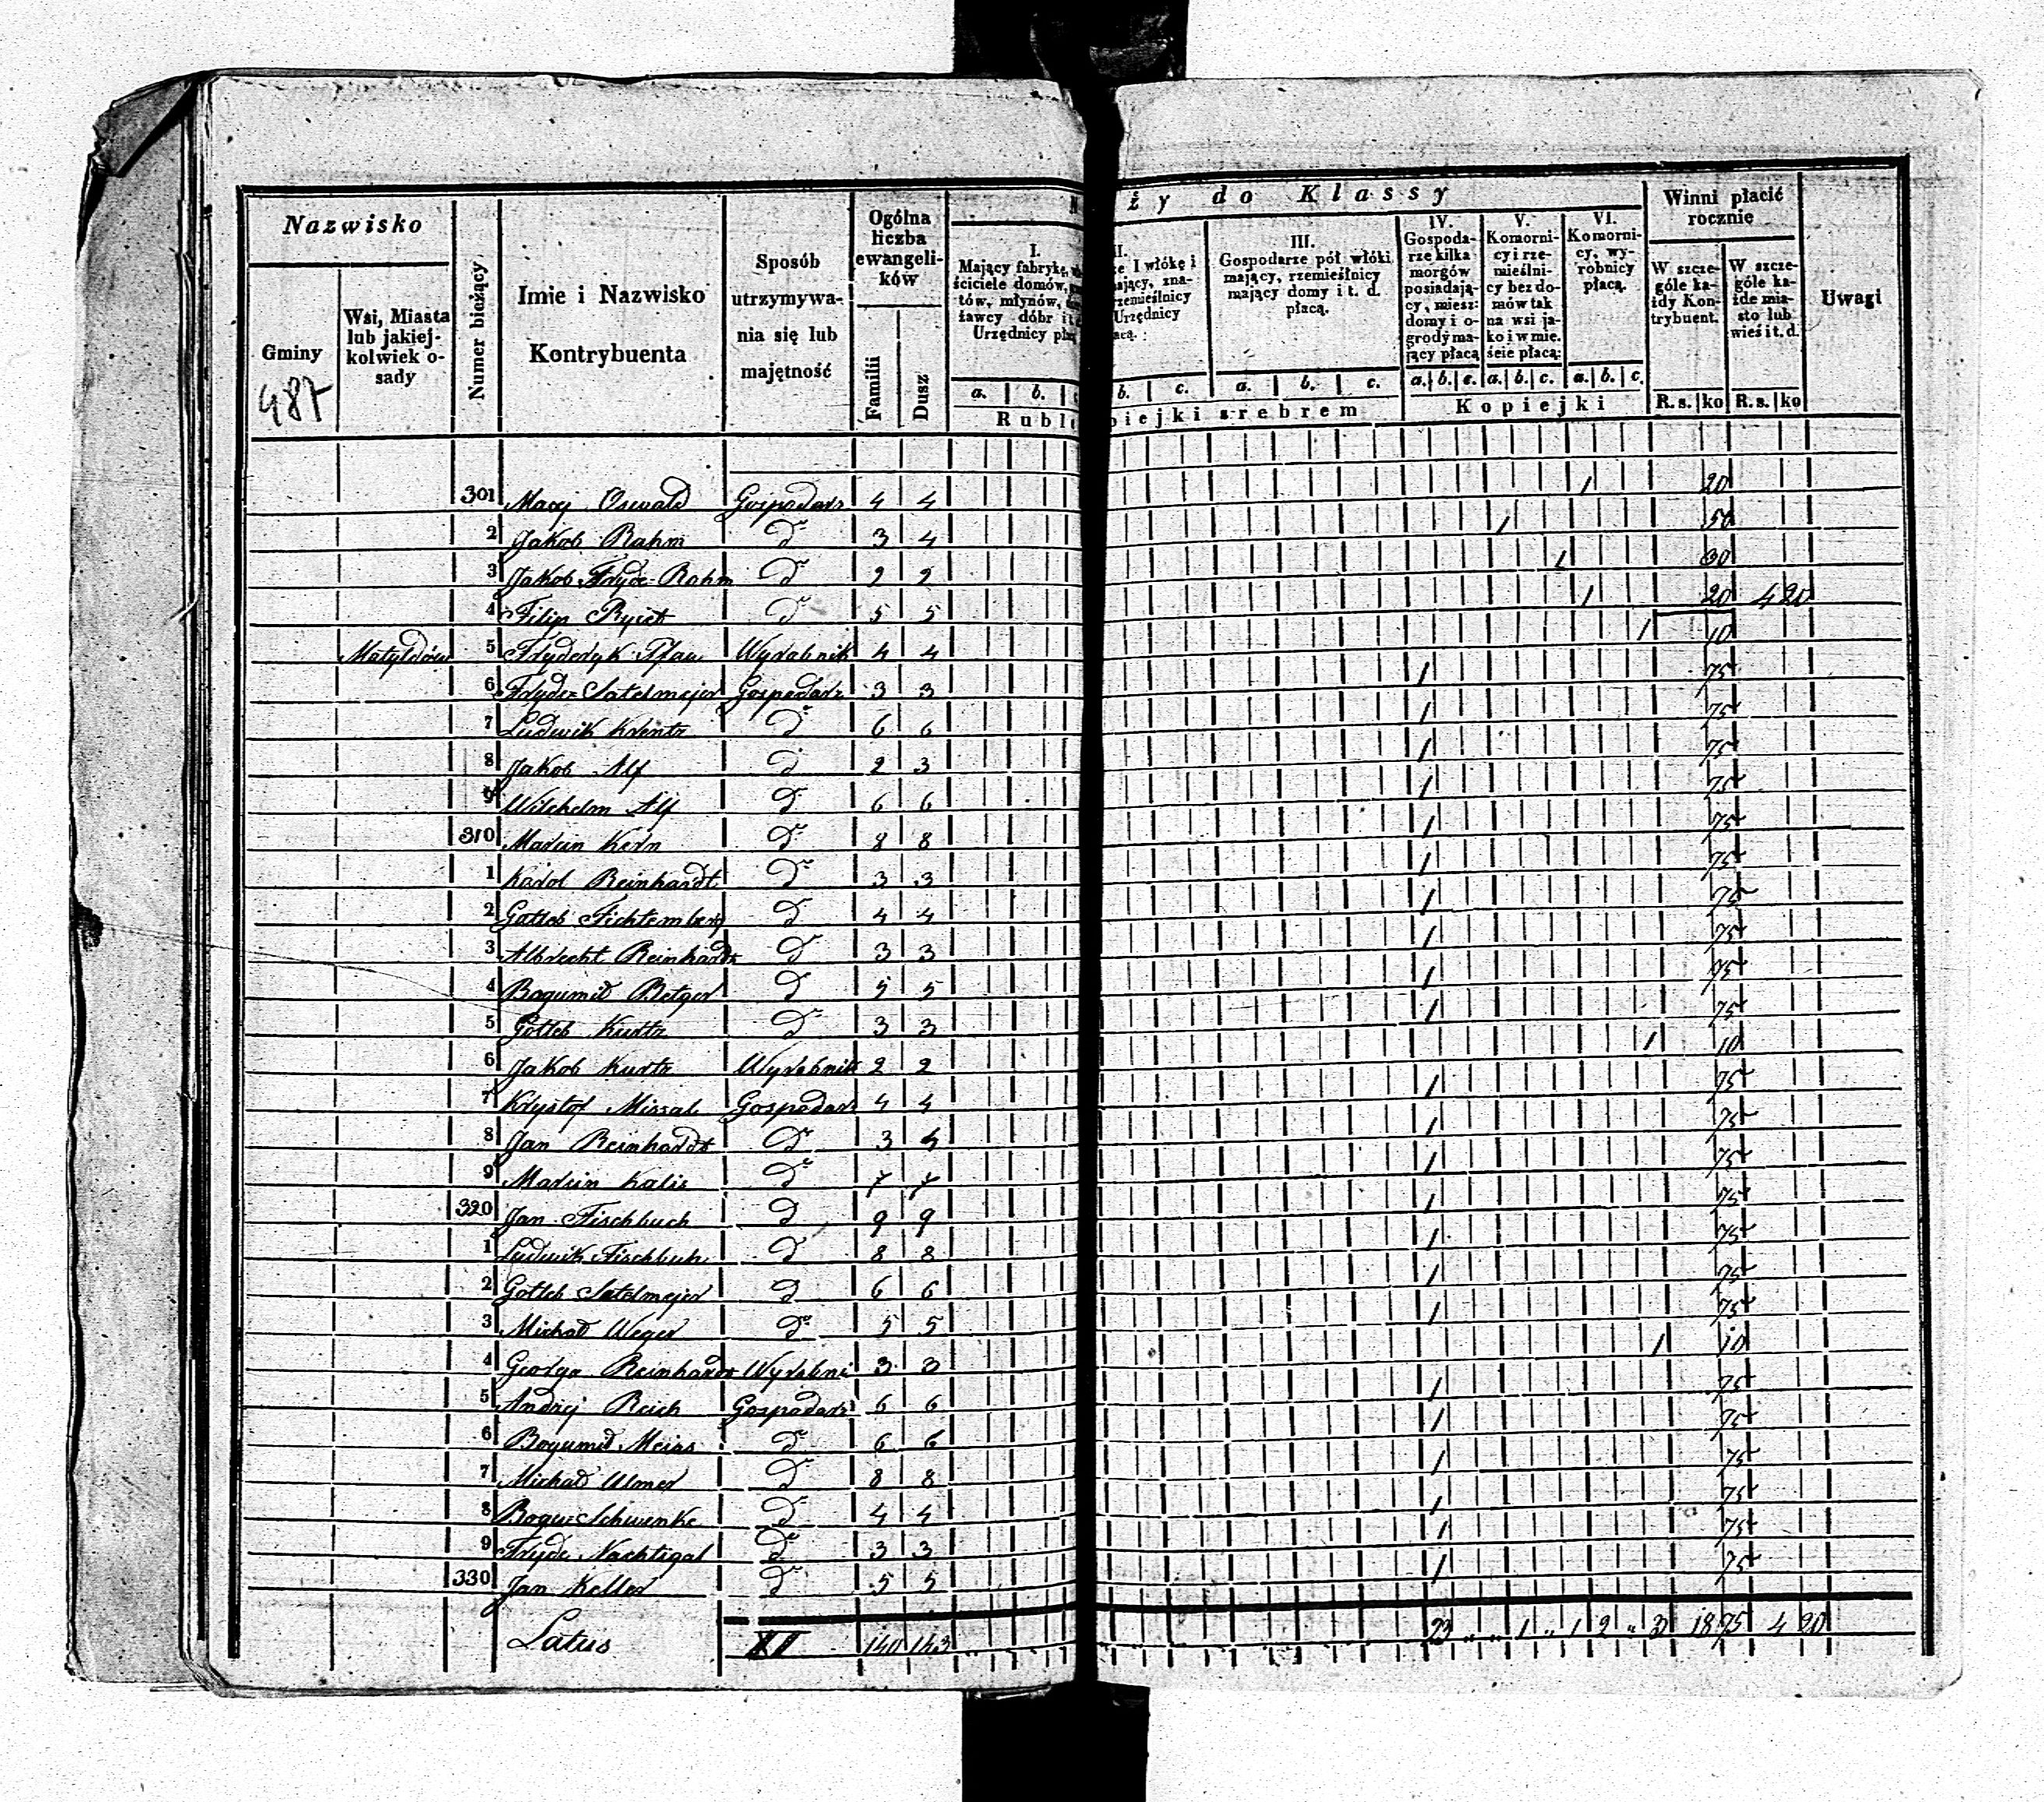 Nazwisko
Gminy
487
Wsi, Miasta lub jakiej-kolwiek o-sady
Numer bieżący
Imie i Nazwisko Kontrybuenta
Sposób utrzymywa-nia się lub majętność
Ogólna liczba ewangeli-ków
Familii
Dusz
ży do Klassy
I.
Mający fabrykę,
ściciele domów,
tów, młynów,
żawcy dóbr i t
Urzędnicy
II.
I włókę i
ający, zna-
rzemieślnicy
Urzędnicy
acą.
III.
Gospodarze pół włóki mający, rzemieślnicy mający domy i t. d. płacą.
IV.
Gospoda-rze kilka morgów posiadają-cy, miesz: domy i o-grody ma-jący płacą
V.
Komorni-cy i rze-mieślni-cy bez do-mów tak na wsi ja-ko i w mie-ście płacą:
VI.
Komorni-cy, wy-robnicy płacą.
Winni płacić rocznie
W szcze-góle ka-żdy Kon-trybuent.
W szcze-góle ka-żde mia-sto lub wieś i t. d.
Uwagi
a. b. b. c. a. b. c. a. b. c. a. b. c. a. b. c. R. s. ko R. s. ko
Rubl piejki srebrem Kopiejki
301 Maciej Oswald Gospodarz 4 4 1 20
2 Jakob Rahm d° 3 4 1 50
3 Jakob Fryde Rahm d° 2 2 1 30
4 Filip d° 5 5 1 20 4 20
Matyldów 5 Fryderyk Pfau Wyrobnik 4 4 1 10
6 Fryde Satelmejer Gospodarz 3 3 1 75
7 Ludwik Krentz d° 6 6 1 75
8 Jakob Alf d° 2 3 1 75
9 Wilchelm Alf d° 6 6 1 75
310 Marcin Kern d° 8 8 1 75
1 Karol Reinhardt d° 3 3 1 75
2 Gotlib Fichtemberg d° 4 4 1 75
3 Albrecht Reinhardt d° 3 3 1 75
4 Bogumił Betger d° 5 5 1 75
5 Gotlib Kurtz d° 3 3 1 75
6 Jakob Kurtz Wyrobnik 2 2 1 10
7 Krystof Missal Gospodarz 4 4 1 75
8 Jan Reinhardt d° 3 4 1 75
9 Marcin Kalis d° 7 7 1 75
320 Jan Fischbuch d° 9 9 1 75
1 Ludwik Fischbuch d° 8 8 1 75
2 Gotlib Satelmejer d° 6 6 1 75
3 Michał Weger d° 5 5 1 75
4 Reinhardt Wyrobni 3 3 1 10
5 Andrzej Reich Gospodarz 6 6 1 75
6 Bogumił d° 6 6 1 75
7 Michał Ulmer d° 8 8 1 75
8 Bogu Schwenke d° 4 4 1 75
9 Fryde Nachtigal d° 3 3 1 75
330 Jan Keller d° 5 5 1 75
Latus 140 143 23 " " 1 " 1 2 " 3 18 75 4 20